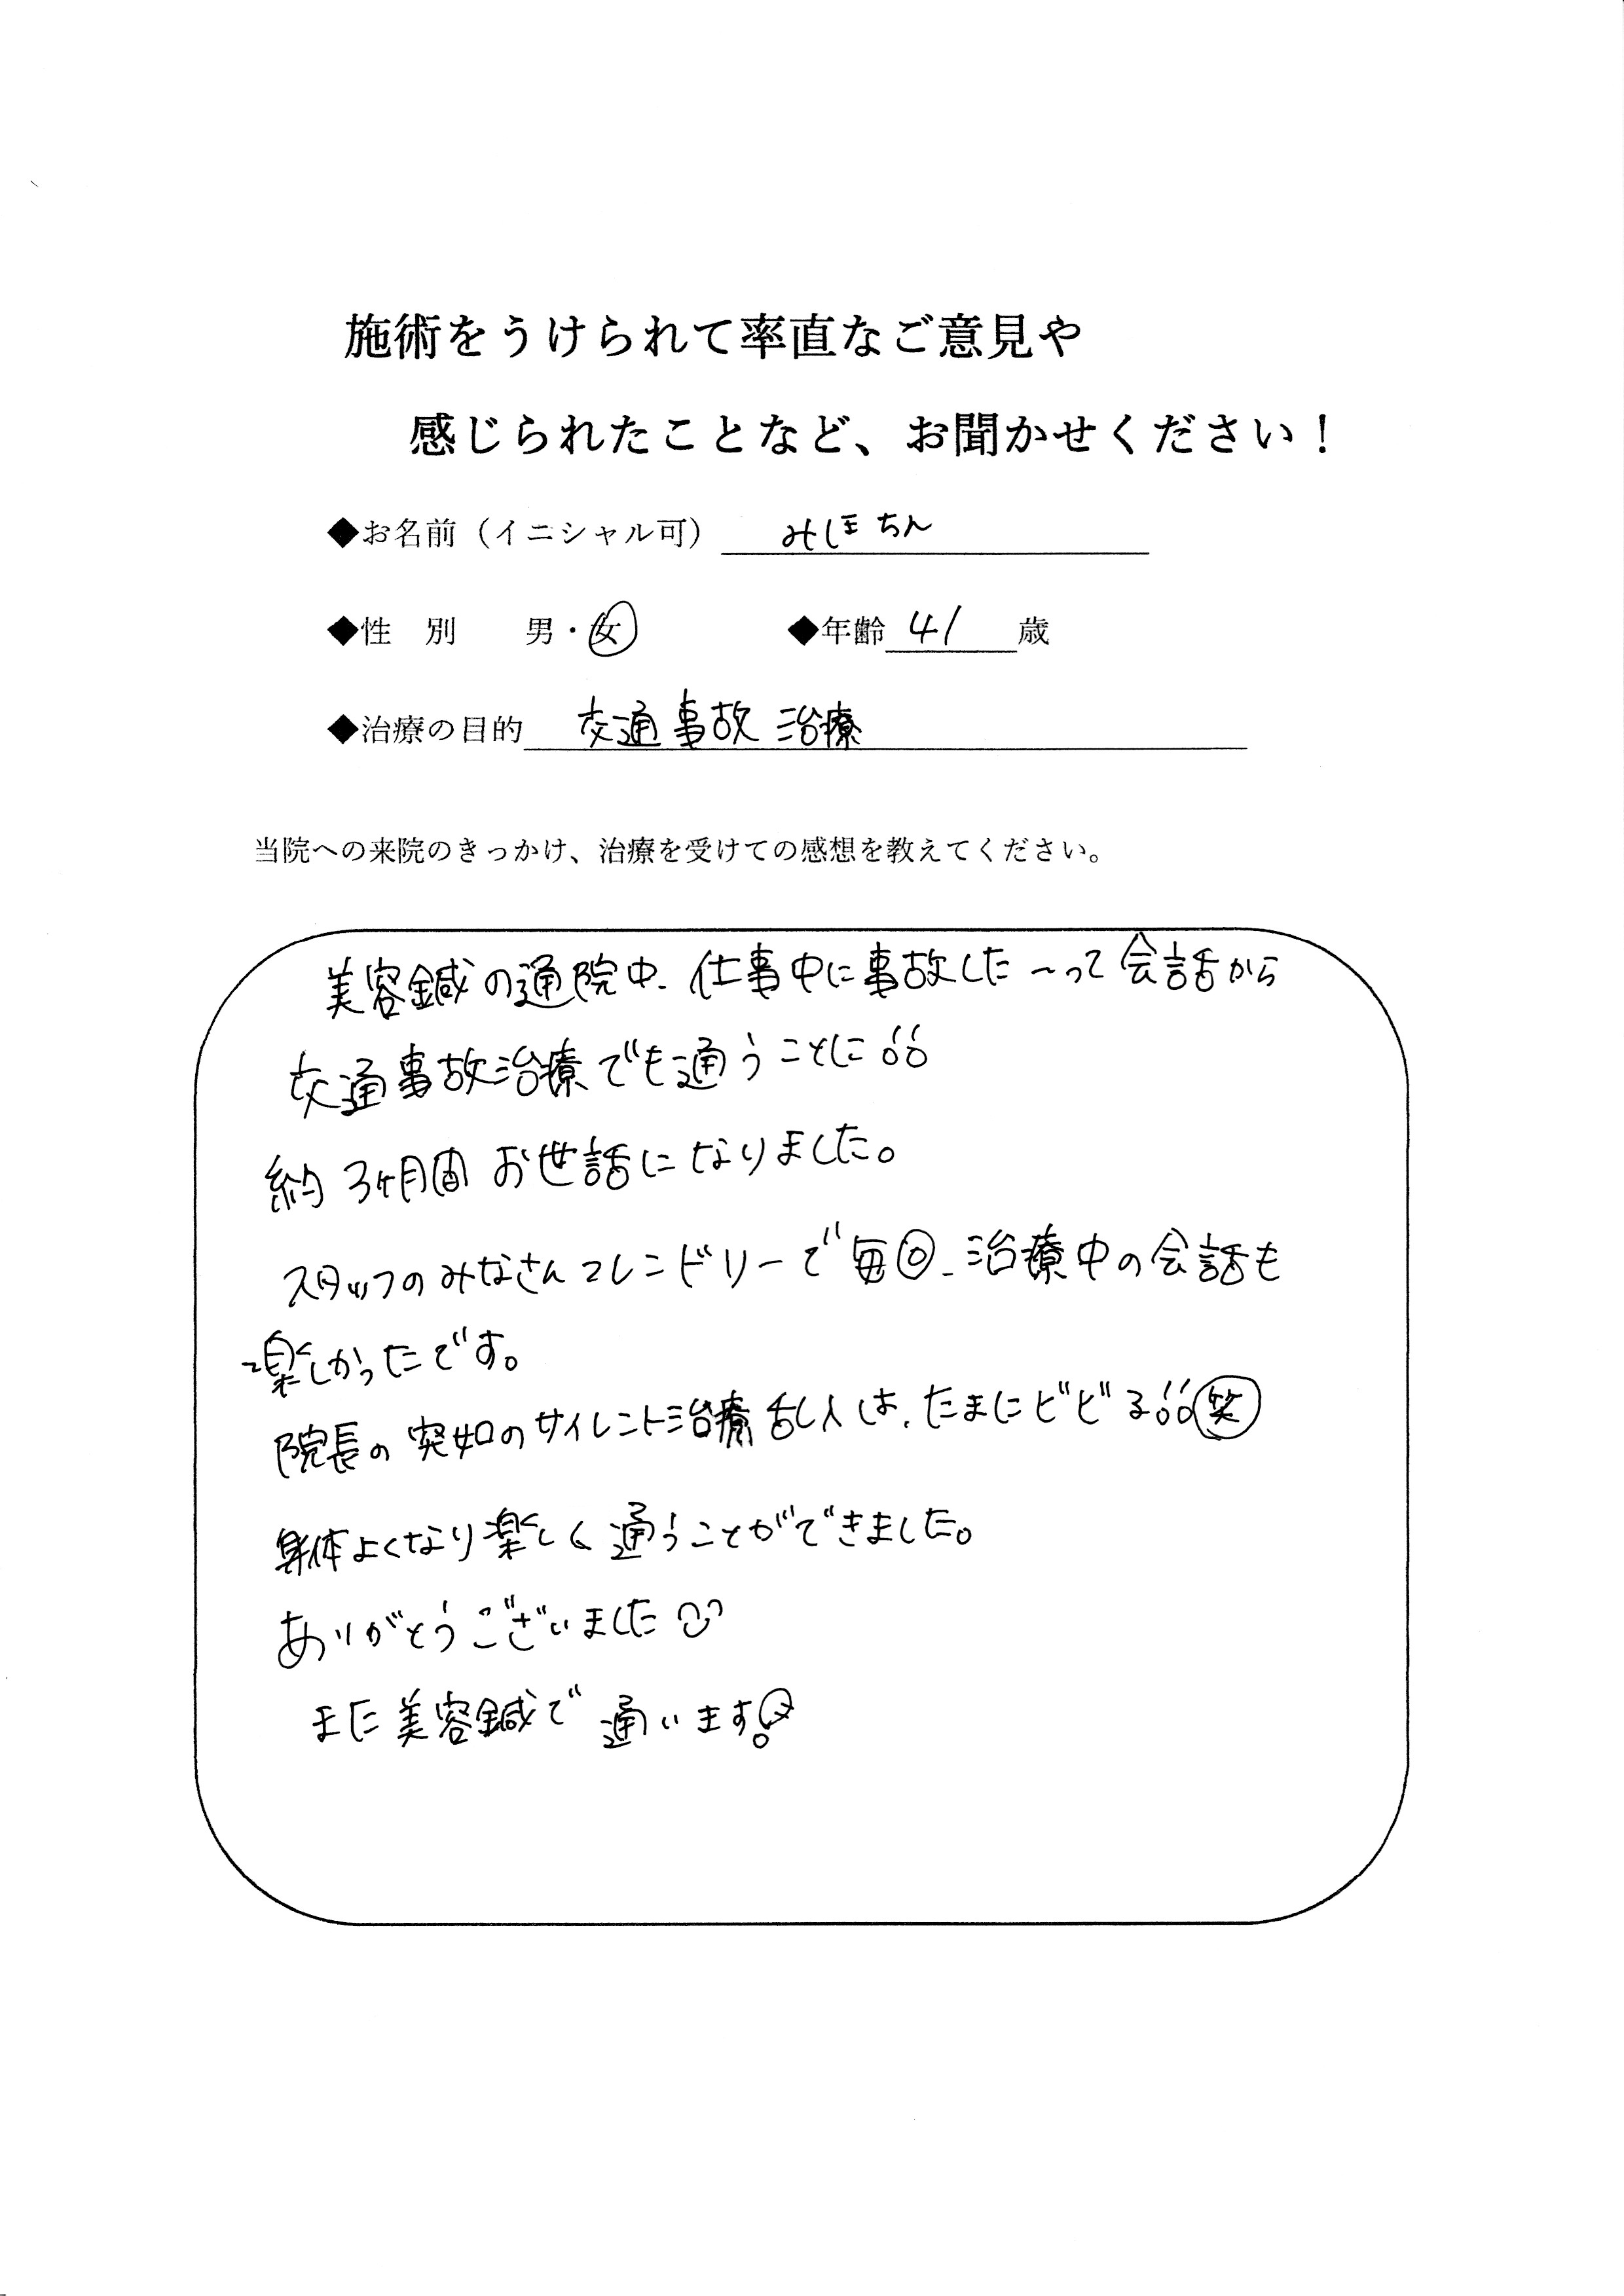 施術をうけられて率直なご意見や
感じられたことなど、お聞かせください！
◆お名前（イニシャル可） みほちん
◆性　別　　男・女　　　　◆年齢 41 歳
◆治療の目的 交通事故 治療
当院への来院のきっかけ、治療を受けての感想を教えてください。
美容鍼の通院中、仕事中に事故した〜って会話から
交通事故治療でも通うことに
約3ヶ月間 お世話になりました。
スタッフのみなさんフレンドリーで毎回、治療中の会話も
楽しかったです。
院長の突如のサイレント治療乱入は、たまにビビる 笑
身体よくなり楽しく通うことができました。
ありがとうございました
また美容鍼で通います!